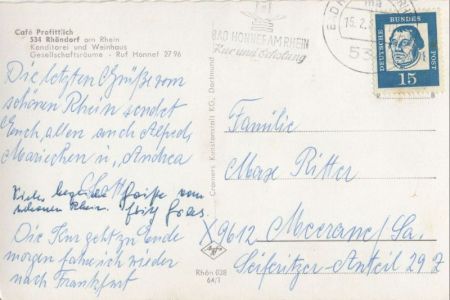 Café Profittlich
534 Rhöndorf am Rhein
Konditorei und Weinhaus
Gesellschaftsräume - Ruf Honnef 27 96
Die letzten Grüße vom
schönen Rhein sendet
Euch, allen auch Alfred,
Mariechen u, Andrea
Viele herzliche Grüße vom
schönen Rhein. Fritz
Die Kur geht zu Ende
morgen fahre ich wieder
nach Frankfurt
Cramers Kunstanstalt KG, Dortmund
Rhön 028
64/1
BAD HONNEF AM RHEIN
Kur und Erholung
15.2.
DEUTSCHE BUNDESPOST
15
Familie
Max Ritter
X9612 Meerane/Sa.
Seiferitzer-Anteil 29